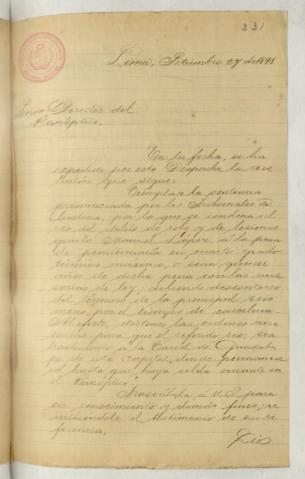 331
Lima, Setiembre 27 de 1898.
Señor Director del
Panóptico.
En la fecha, se ha
expedido por este Despacho la reso
lución que sigue:
Cúmplase la sentencia
pronunciada por los Tribunales de
Justicia, por la que se condena al
reo del delito de robo y de lesiones
Manuel López, á la pena
de penitenciaría en cuarto grado
término máximo, ó sean quince
años de dicha pena con las acce
sorias de ley, debiendo descontarse
del término de la principal seis
meses por el tiempo de carcelería.
Al efecto, díctense las órdenes nece
sarias para que el referido reo, sea
trasladado á la Cárcel de Guadalu
pe de esta capital, donde permanece
rá hasta que haya celda vacante en
el Panóptico".
Trascríbola á US. para
su conocimiento y demás fines, re
mitiéndole el testimonio de su re
ferencia.
Dios